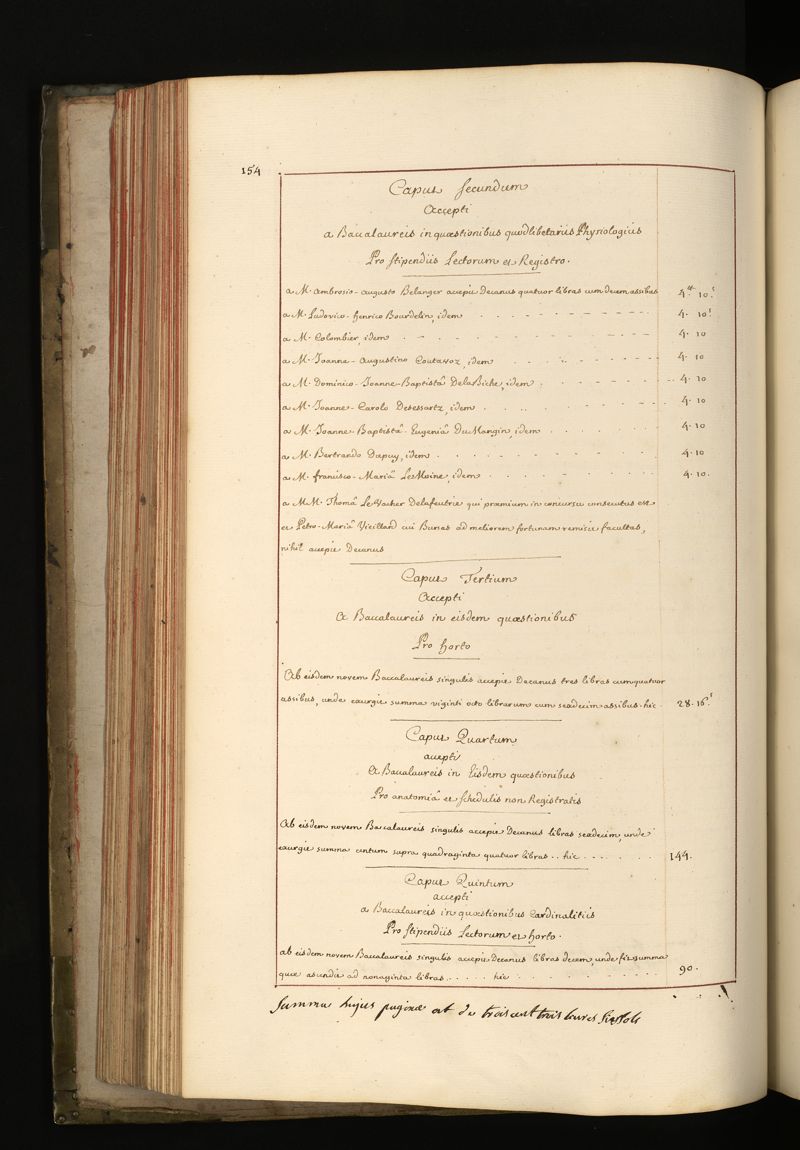 154
Caput secundum
Accepti
a Baccalaureis in quæstionibus quodlibetariis Physiologicis
Pro stipendiis Lectorum et Registro.
a M. Ambrosio-Augusto Belanger accepit Decanus quatuor libras cum decem assibus 4.tt 10.s
a M. Ludovico-henrico Bourdelin, idem 4. 10s
a M. Colombier, idem 4. 10
a M. Joanne-Augustino Coutavoz, idem 4. 10
a M. Dominico-Joanne-Baptistâ DelaBiche, idem 4. 10
a M. Joanne-Carolo Desessartz, idem 4. 10
a M. Joanne-Baptistâ-Eugeniâ DuMangin, idem 4. 10
a M. Bertrando Dupuy, idem 4. 10
a M. francisco-Mariâ LeMoine, idem 4. 10.
a MM. Thomâ LeVacher Delafeutrie qui præmium in concursu consecutus est
et Petro-Mariâ Vieillard cui Bursas ad meliorem fortunam remisit facultas,
nihil accepit Decanus
Caput Tertium
Accepti
A Baccalaureis in eisdem quæstionibus
Pro horto
Ab eisdem novem Baccalaureis singulis accepit Decanus tres libras cum quatuor
assibus, unde exurgit summa viginti octo librarum cum sexdecim assibus. hic. 28. 16.s
Caput Quartum
accepti
A Baccalaureis in Eisdem quæstionibus
Pro anatomiâ et schedulis non Registratis
Ab eisdem novem Baccalaureis singulis accepit Decanus libras sexdecim, unde
exurgit summa centum supra quadraginta quatuor libras .. hic 144.
Caput Quintum
accepti
a Baccalaureis in quæstionibus Cardinalitiis
Pro stipendiis Lectorum et horto.
ab eisdem novem Baccalaureis singulis accepit Decanus libras decem, unde fit summa
quæ ascendit ad nonaginta libras hic 90.
Summa hujus paginæ est de trois cent trois livres six sols